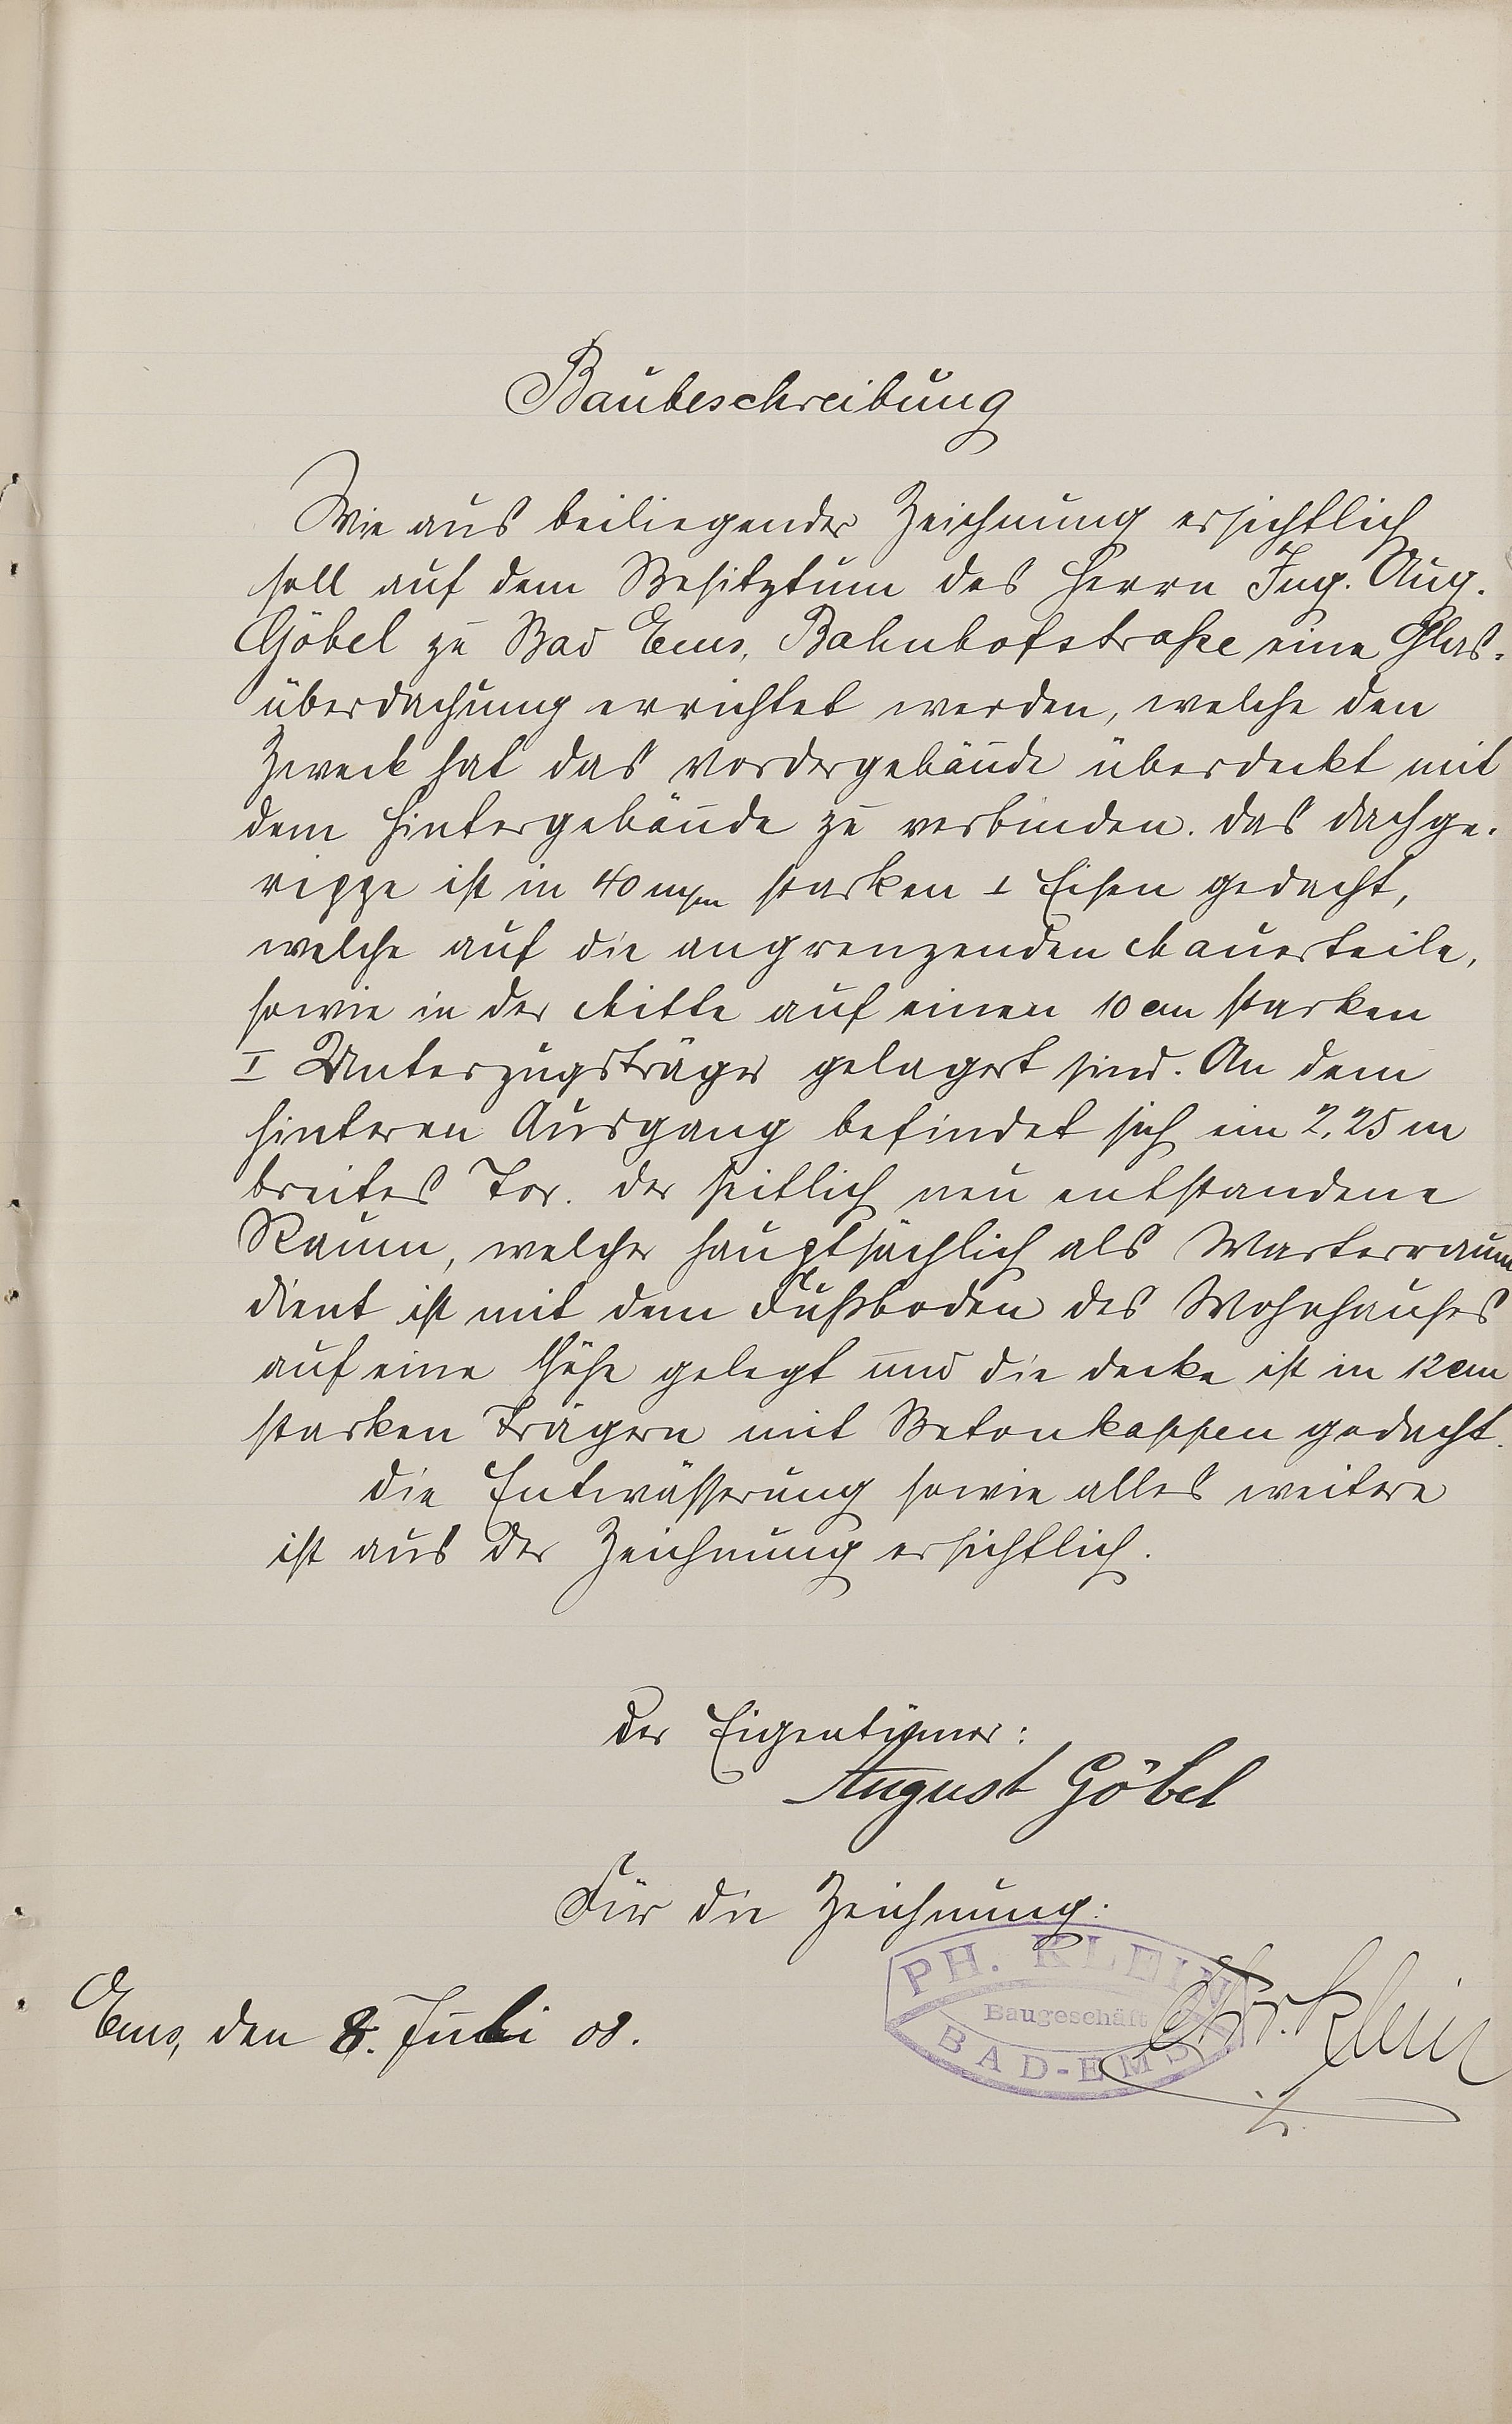 Baubeschreibung
Wie aus beiliegender Zeichnung ersichtlich
soll auf dem Besitztum des Herrn Ing. Aug.
Göbel zu Bad Ems, Bahnhofstraße eine Glas-
überdachung errichtet werden, welche den
Zweck hat das Vordergebäude überdeckt mit
dem Hintergebäude zu verbinden. Das Dachge-
rippe ist in 40 m/m starken ⊥ Eisen gedacht,
welche auf die angrenzenden Mauerteile,
sowie in der Mitte auf einen 10 cm starken
I Unterzugsträger gelagert sind. An dem
hinteren Ausgang befindet sich ein 2,25 m
breites Tor. Der seitlich neu entstandene
Raum, welcher hauptsächlich als Warteraum
dient ist mit dem Fußboden des Wohnhauses
auf eine Höhe gelegt und die Decke ist in 12 cm
starken Trägern mit Betonkappen gedacht.
Die Entwässerung sowie alles weitere
ist aus der Zeichnung ersichtlich.
Der Eigentümer:
August Göbel
Für die Zeichnung:
PH. KLEIN
Baugeschäft
BAD-EMS
Klein
Ems, den 8. Juli 08.